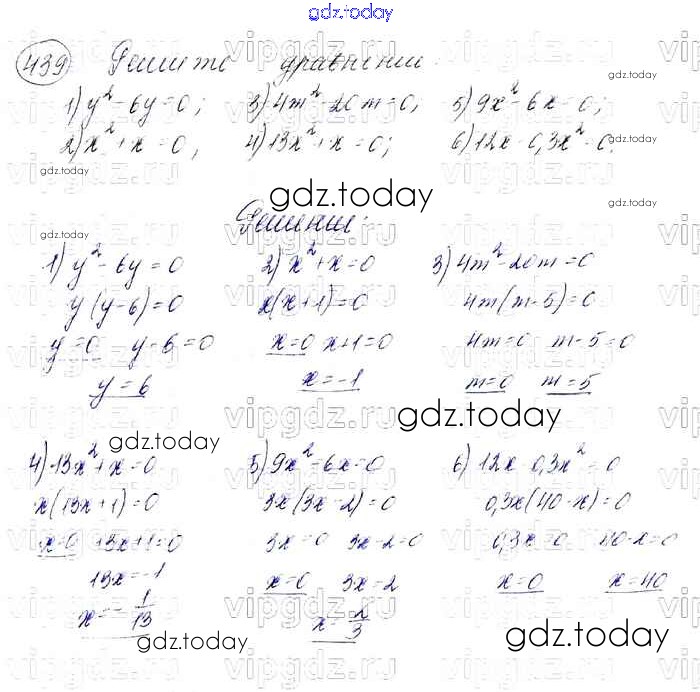 gdz.today
439 Решите уравнения:
1) y² - 6y = 0; 3) 4m² - 20m = 0; 5) 9x² - 6x = 0;
2) x² + x = 0; 4) 13x² + x = 0; 6) 12x - 0,3x² = 0.
gdz.today
Решение:
1) y² - 6y = 0
y(y-6) = 0
y = 0 y - 6 = 0
y = 6
2) x² + x = 0
x(x+1) = 0
x = 0 x+1 = 0
x = -1
3) 4m² - 20m = 0
4m(m-5) = 0
4m = 0 m - 5 = 0
m = 0 m = 5
gdz.today
4) 13x² + x = 0
x(13x+1) = 0
x = 0 13x+1 = 0
13x = -1
x = -1/13
5) 9x² - 6x = 0
3x(3x-2) = 0
3x = 0 3x - 2 = 0
x = 0 3x = 2
x = 2/3
6) 12x - 0,3x² = 0
0,3x(40-x) = 0
0,3x = 0 40-x = 0
x = 0 x = 40
gdz.today
vipgdz.ru